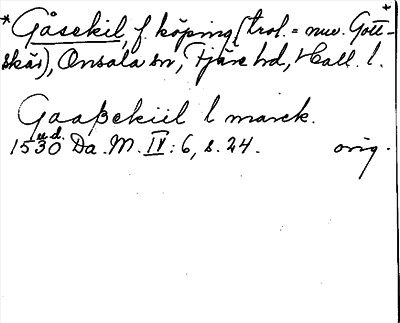 * Gåsekil, f. köping (trol. = nuv. Gott-
skär), Onsala sn, Fjäre hd, Hall. l.
Gaaßekiil l marck.
u.d.
1530 Da. M. IV: 6, s. 24. orig.